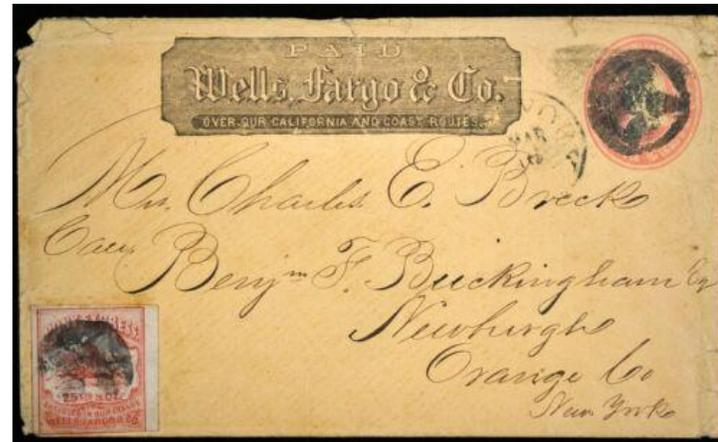 PAID
Wells, Fargo & Co.
OVER OUR CALIFORNIA AND COAST ROUTES.
MAR
Mrs. Charles E. Breck
Care Benjm F. Buckingham Esq
Newburgh
Orange Co
New York
WELLS, FARGO & CO.